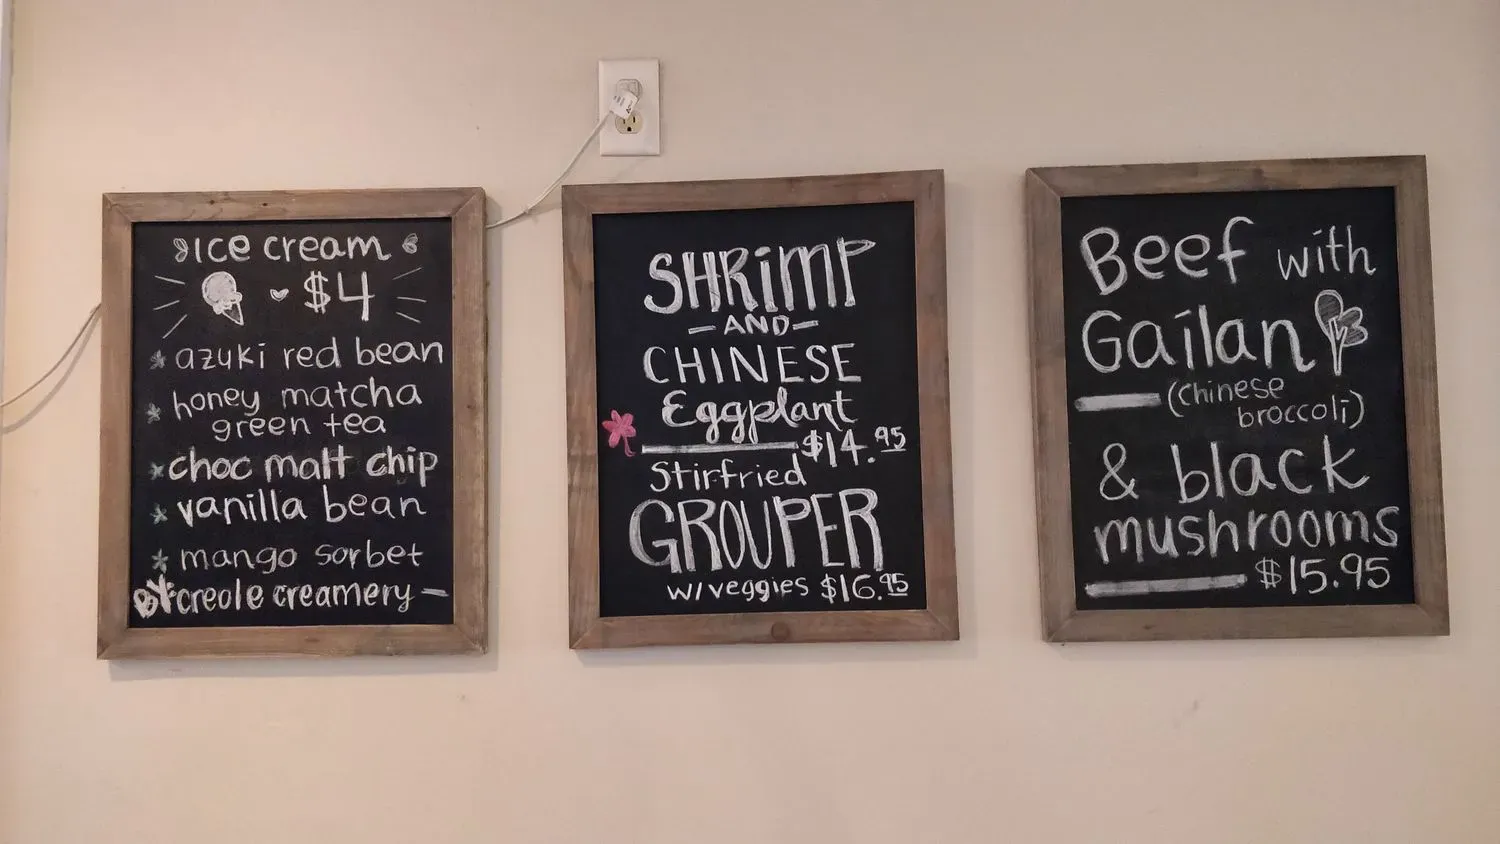 Ice cream
$4
azuki red bean
honey matcha
green tea
choc malt chip
vanilla bean
mango sorbet
BY: creole creamery
SHRIMP
AND
CHINESE
Eggplant
$14.95
Stirfried
GROUPER
w/veggies $16.95
Beef with
Gailan
(Chinese
broccoli)
& black
mushrooms
$15.95